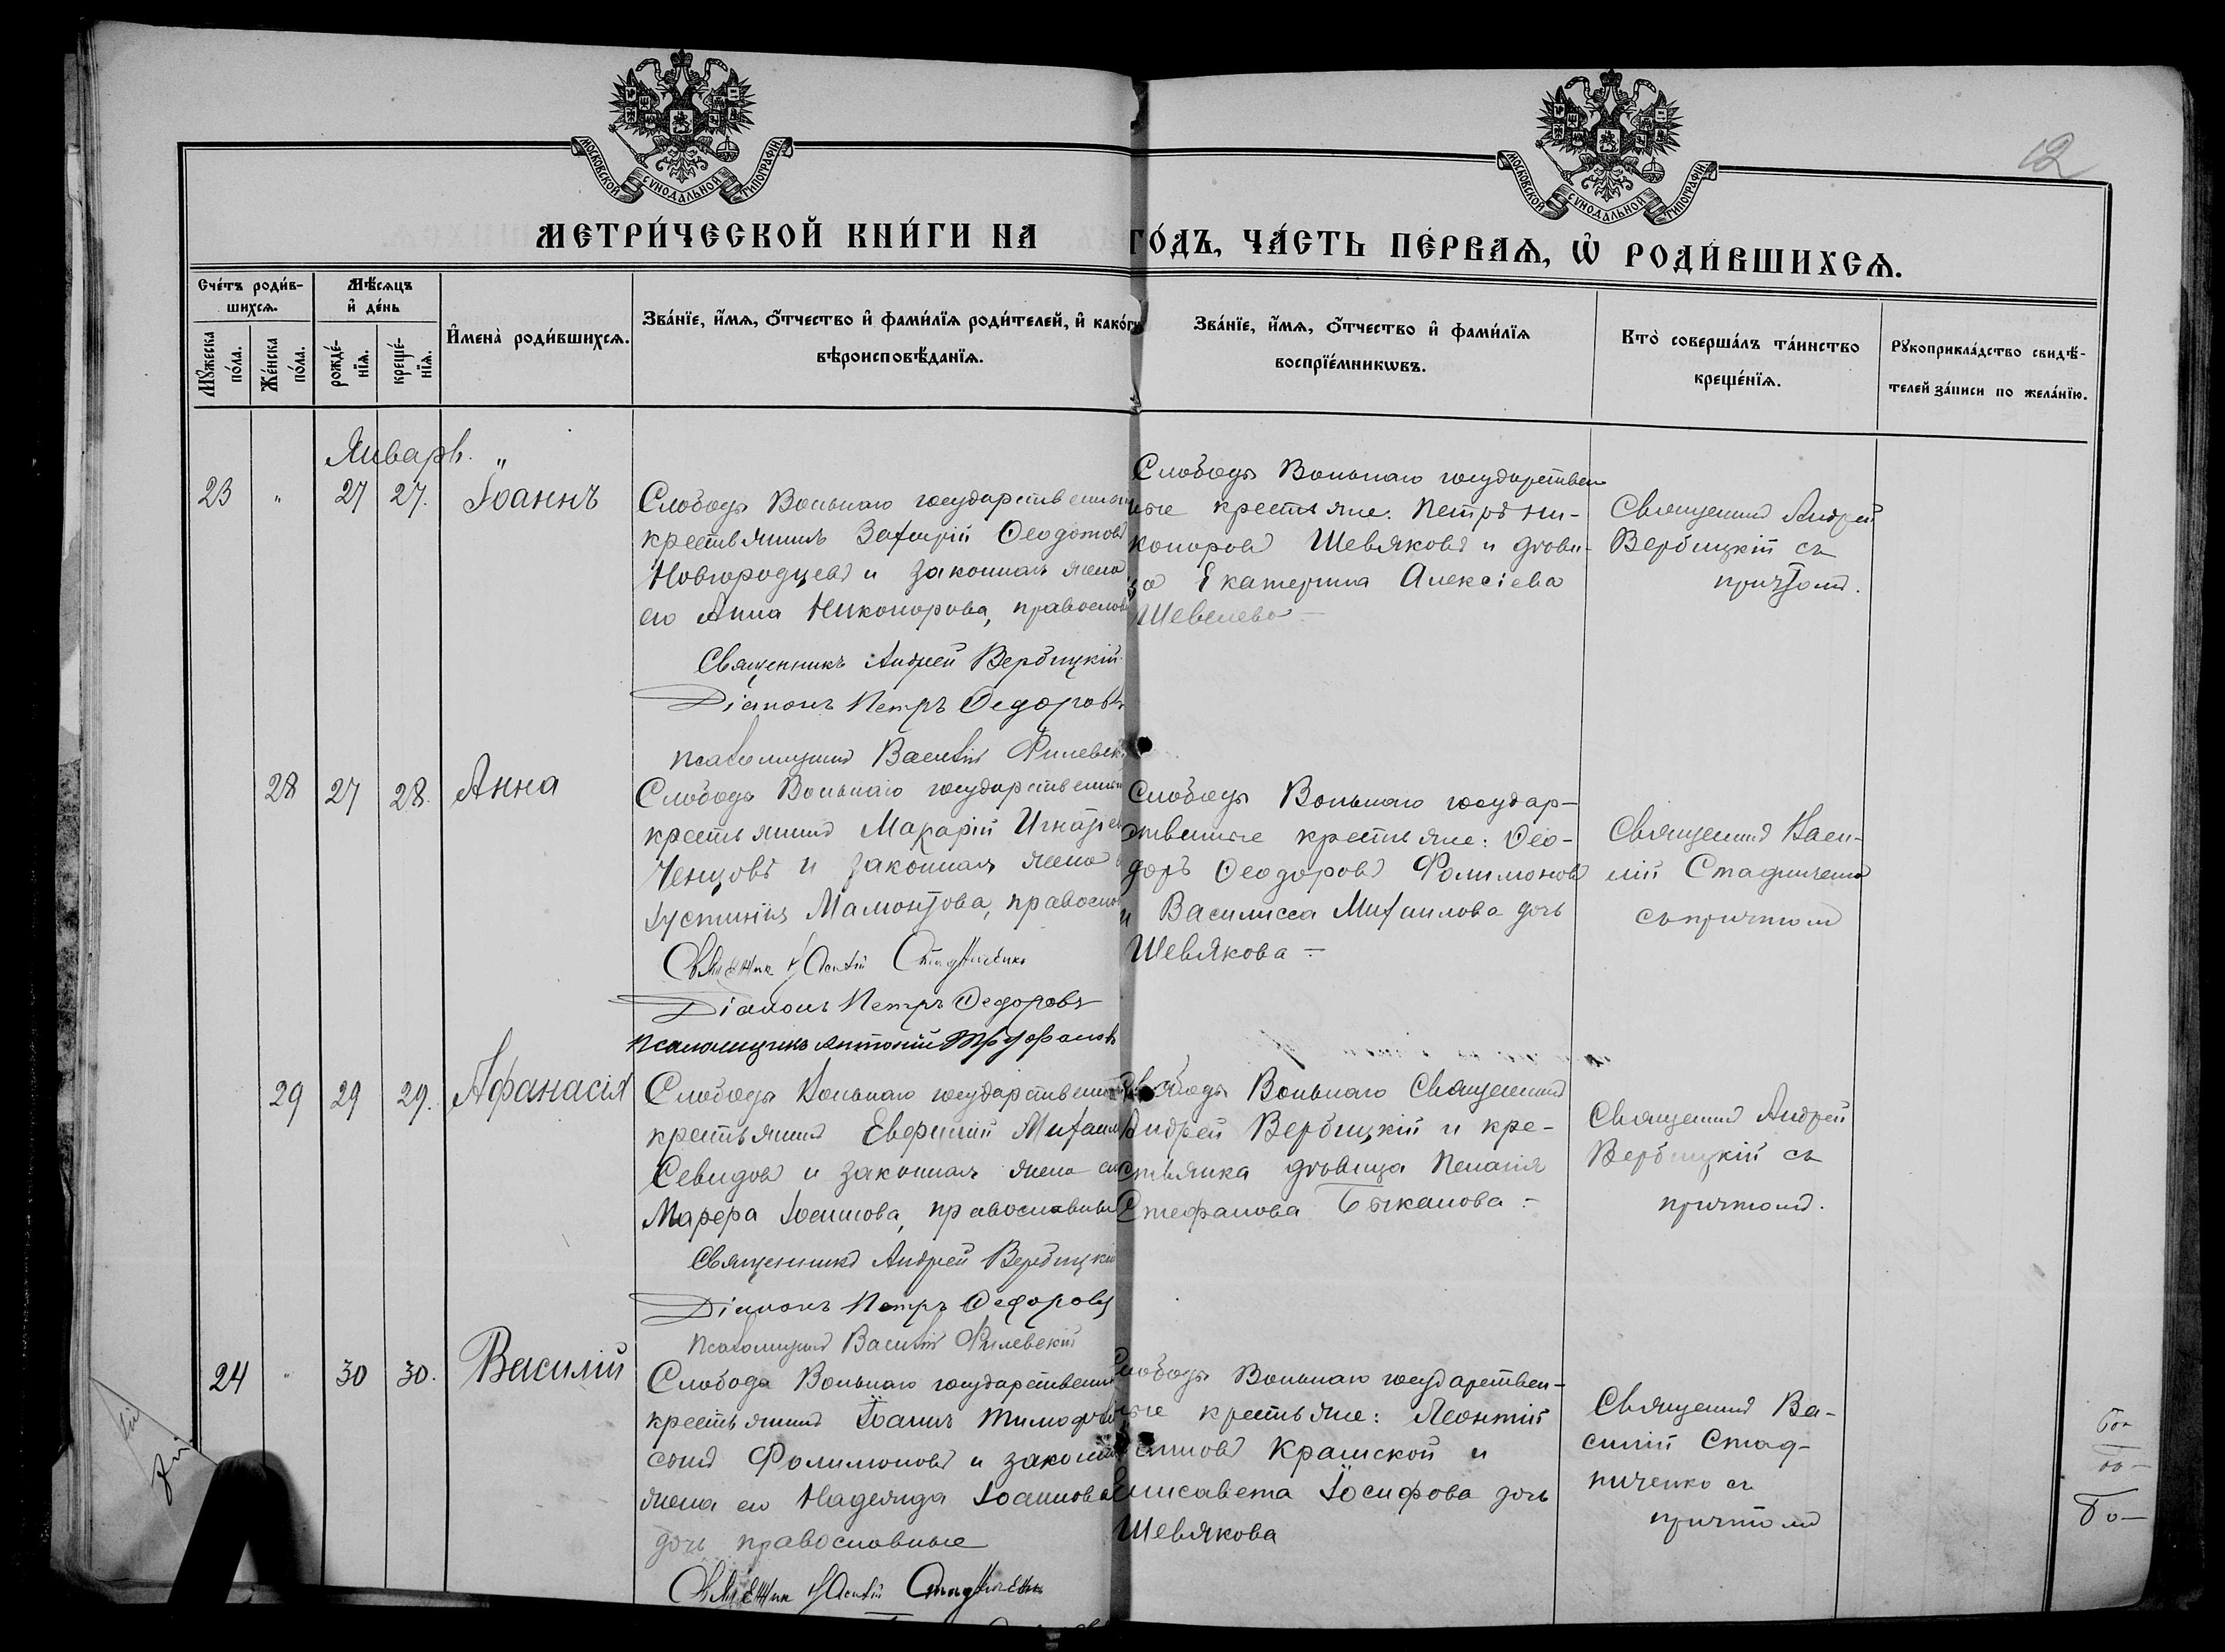 МОСКОВСКОЙ СѴНОДАЛЬНОЙ ТИПОГРАФІИ
МОСКОВСКОЙ СѴНОДАЛЬНОЙ ТИПОГРАФІИ
12
МЕТРИ́ЧЕСКОЙ КНИ́ГИ НА ГО́ДЪ, ЧА́СТЬ ПЕ́РВАѦ, Ѡ҆ РОДИ́ВШИХСѦ.
Сче́тъ роди́в-
шихсѧ.
Мꙋ́жеска по́ла.
Же́нска по́ла.
Мѣ́сѧцъ
и҆ де́нь
рожде́-
нїѧ.
креще́-
нїѧ.
И҆мена̀ роди́вшихсѧ.
Зва́нїе, и҆́мѧ, ѻ҆́тчество и҆ фами́лїѧ роди́телей, и҆ како́гѡ
вѣроисповѣ́данїѧ.
Зва́нїе, и҆́мѧ, ѻ҆́тчество и҆ фами́лїѧ
воспрїе́мникѡвъ.
Кто̀ соверша́лъ та́инство
креще́нїѧ.
Рꙋкоприкла́дство свидѣ́-
телей за́писи по жела́нїю.
Январь. "
23 " 27 27. Іоаннъ
Слободы Вольнаго государственный
крестьянинъ Захарій Ѳеодотовъ
Новгородцевъ и законная жена
его Анна Никонорова, православ
Священникъ Андрей Вербицкій
Діаконъ Петръ Ѳедоровъ
Псаломщикъ Василій Филевск
Слободы Вольнаго государствен
ные крестьяне. Петръ Ни-
коноровъ Шевяковъ и дѣви-
ца Екатерина Алексіева
Шевелева —
Священникъ Андрей
Вербицкій съ
причтомъ.
28 27 28. Анна
Слободы Вольнаго государственный
крестьянинъ Макарій Игнатіев
Ченцовъ и законная жена
Іустинія Мамонтова, православ
Священник Василій Стадниченко
Діаконъ Петръ Ѳедоровъ
Псаломщикъ Антоній Труфановъ
Слободы Вольнаго государ-
ственные крестьяне: Ѳео-
доръ Ѳеодоровъ Филимоновъ
и Василисса Михаилова дочь
Шевякова —
Священникъ Васи-
лій Стадниченко
съ причтомъ
29 29 29. Афанасія
Слободы Вольнаго государственный
крестьянинъ Евфимій Михаил
Севидов и законная жена его
Марфа Іоаннова, православные
Священникъ Андрей Вербицкій
Діаконъ Петръ Ѳедоровъ
Псаломщикъ Василій Филевскій
Слободы Вольнаго Священникъ
Андрей Вербицкій и кре-
стьянка дѣвица Пелагія
Стефанова Быканова —
Священникъ Андрей
Вербицкій съ
причтомъ.
24 " 30 30. Василій
Слобода Вольнаго государственный
крестьянинъ Іоаннъ Тимоѳеевъ
сынъ Филимоновъ и законная
жена его Надежда Іоаннова
дочь православные
Священник Василій Стадниченко
Слободы Вольнаго государствен-
ные крестьяне: Леонтій
Крамской и
Елисавета Іосифова дочь
Шевякова
Священникъ Ва-
силій Стад-
ниченко съ
причтомъ